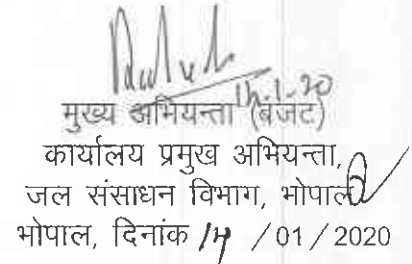 मुख्य अभियन्ता (बजट)
कार्यालय प्रमुख अभियन्ता,
जल संसाधन विभाग, भोपाल
भोपाल, दिनांक 14 / 01 / 2020